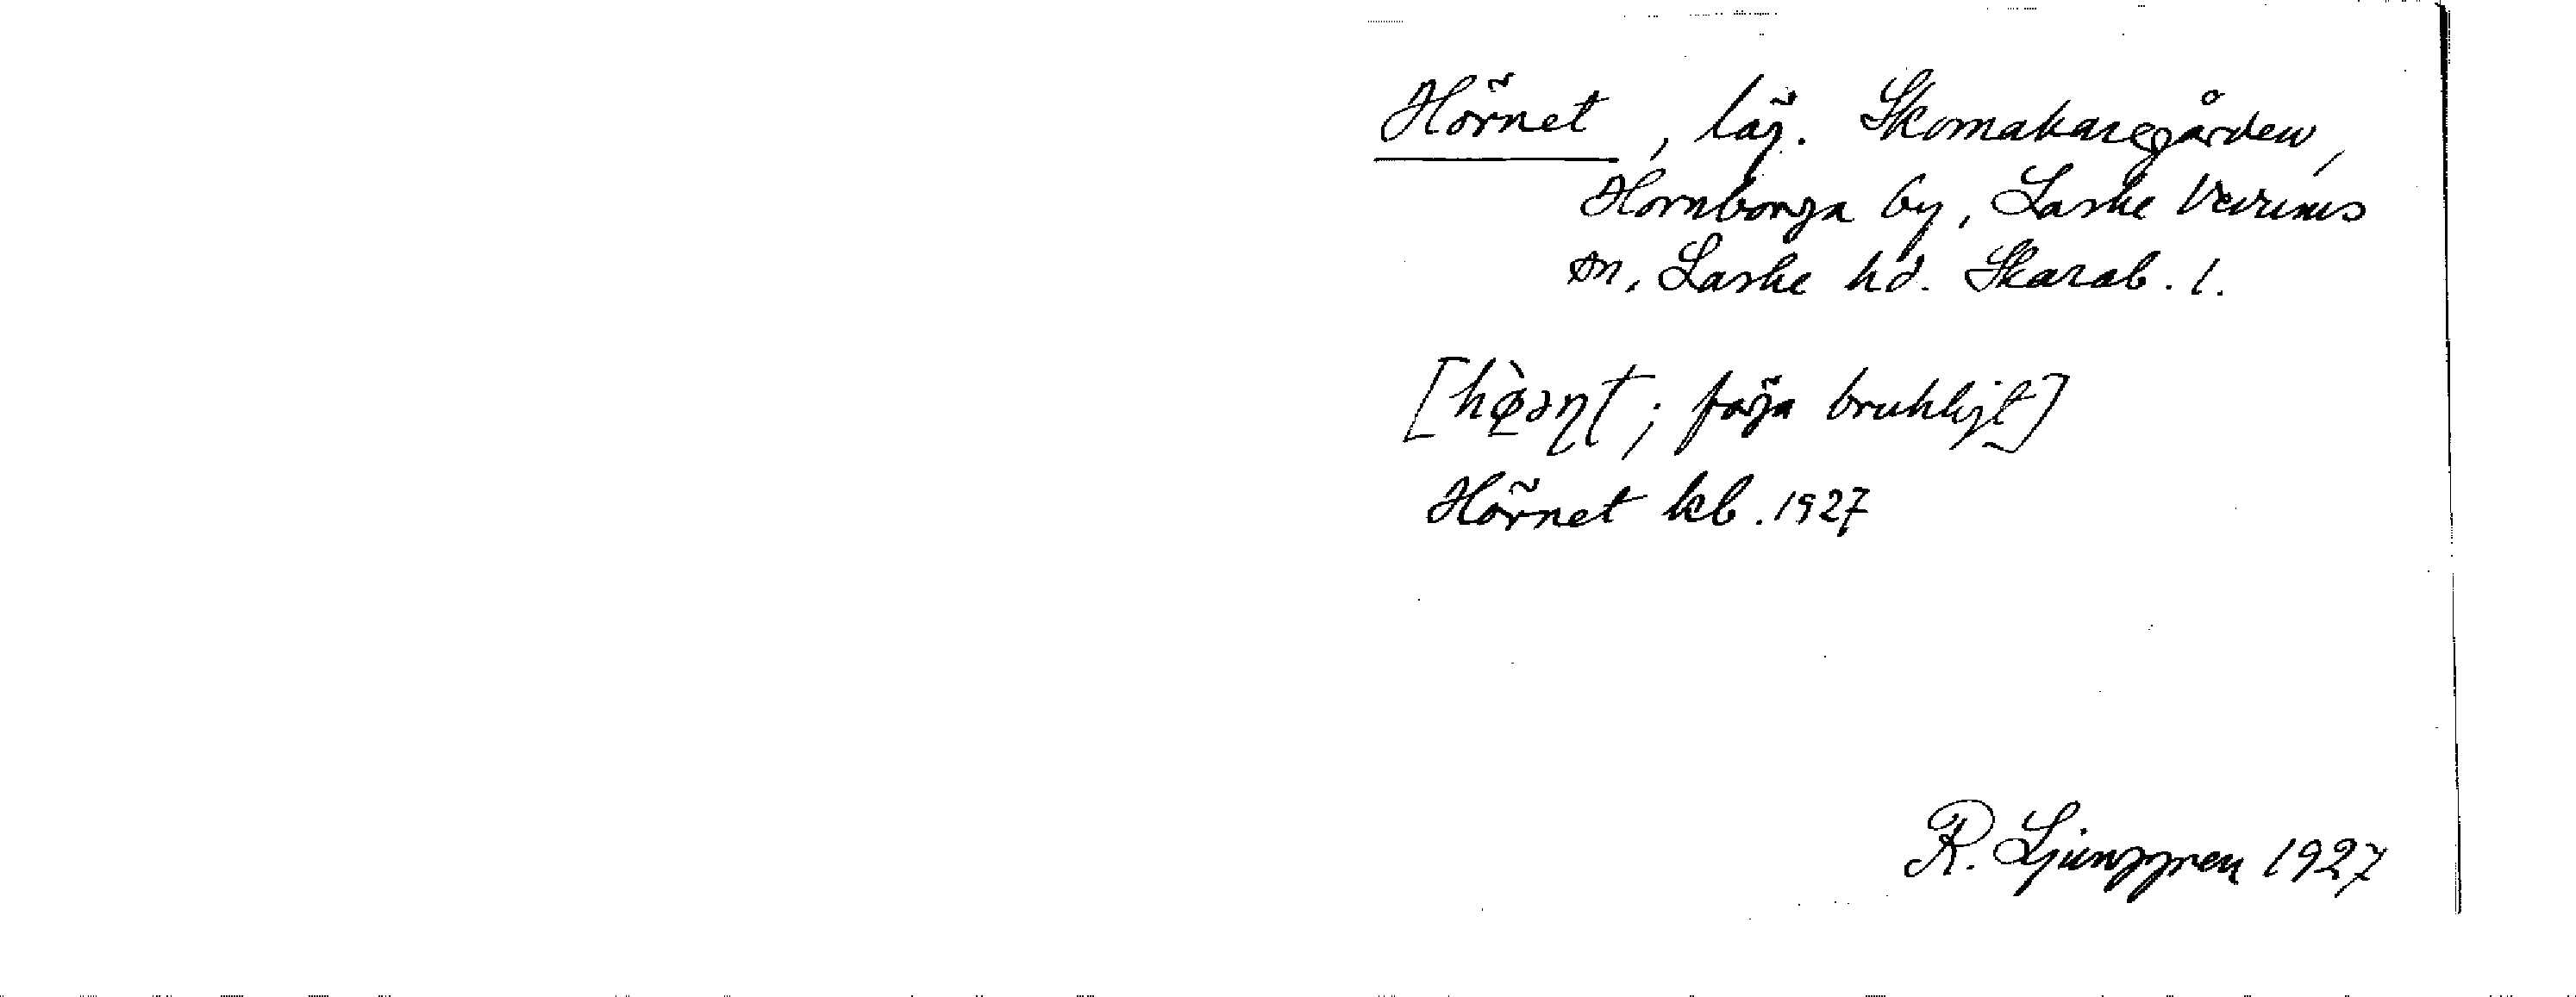 Hörnet, läg. Skomakaregården,
Hornborga by, Laske Vedums
sn, Laske hd. Skarab. l.
[hø̀əɳt; föga brukligt]
Hörnet kb. 1927
R. Ljunggren 1927